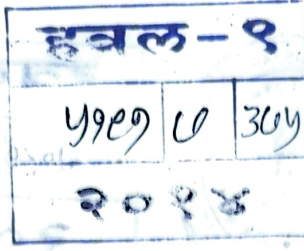 हवल-१
५१९१ ७ ३७५
२०१४